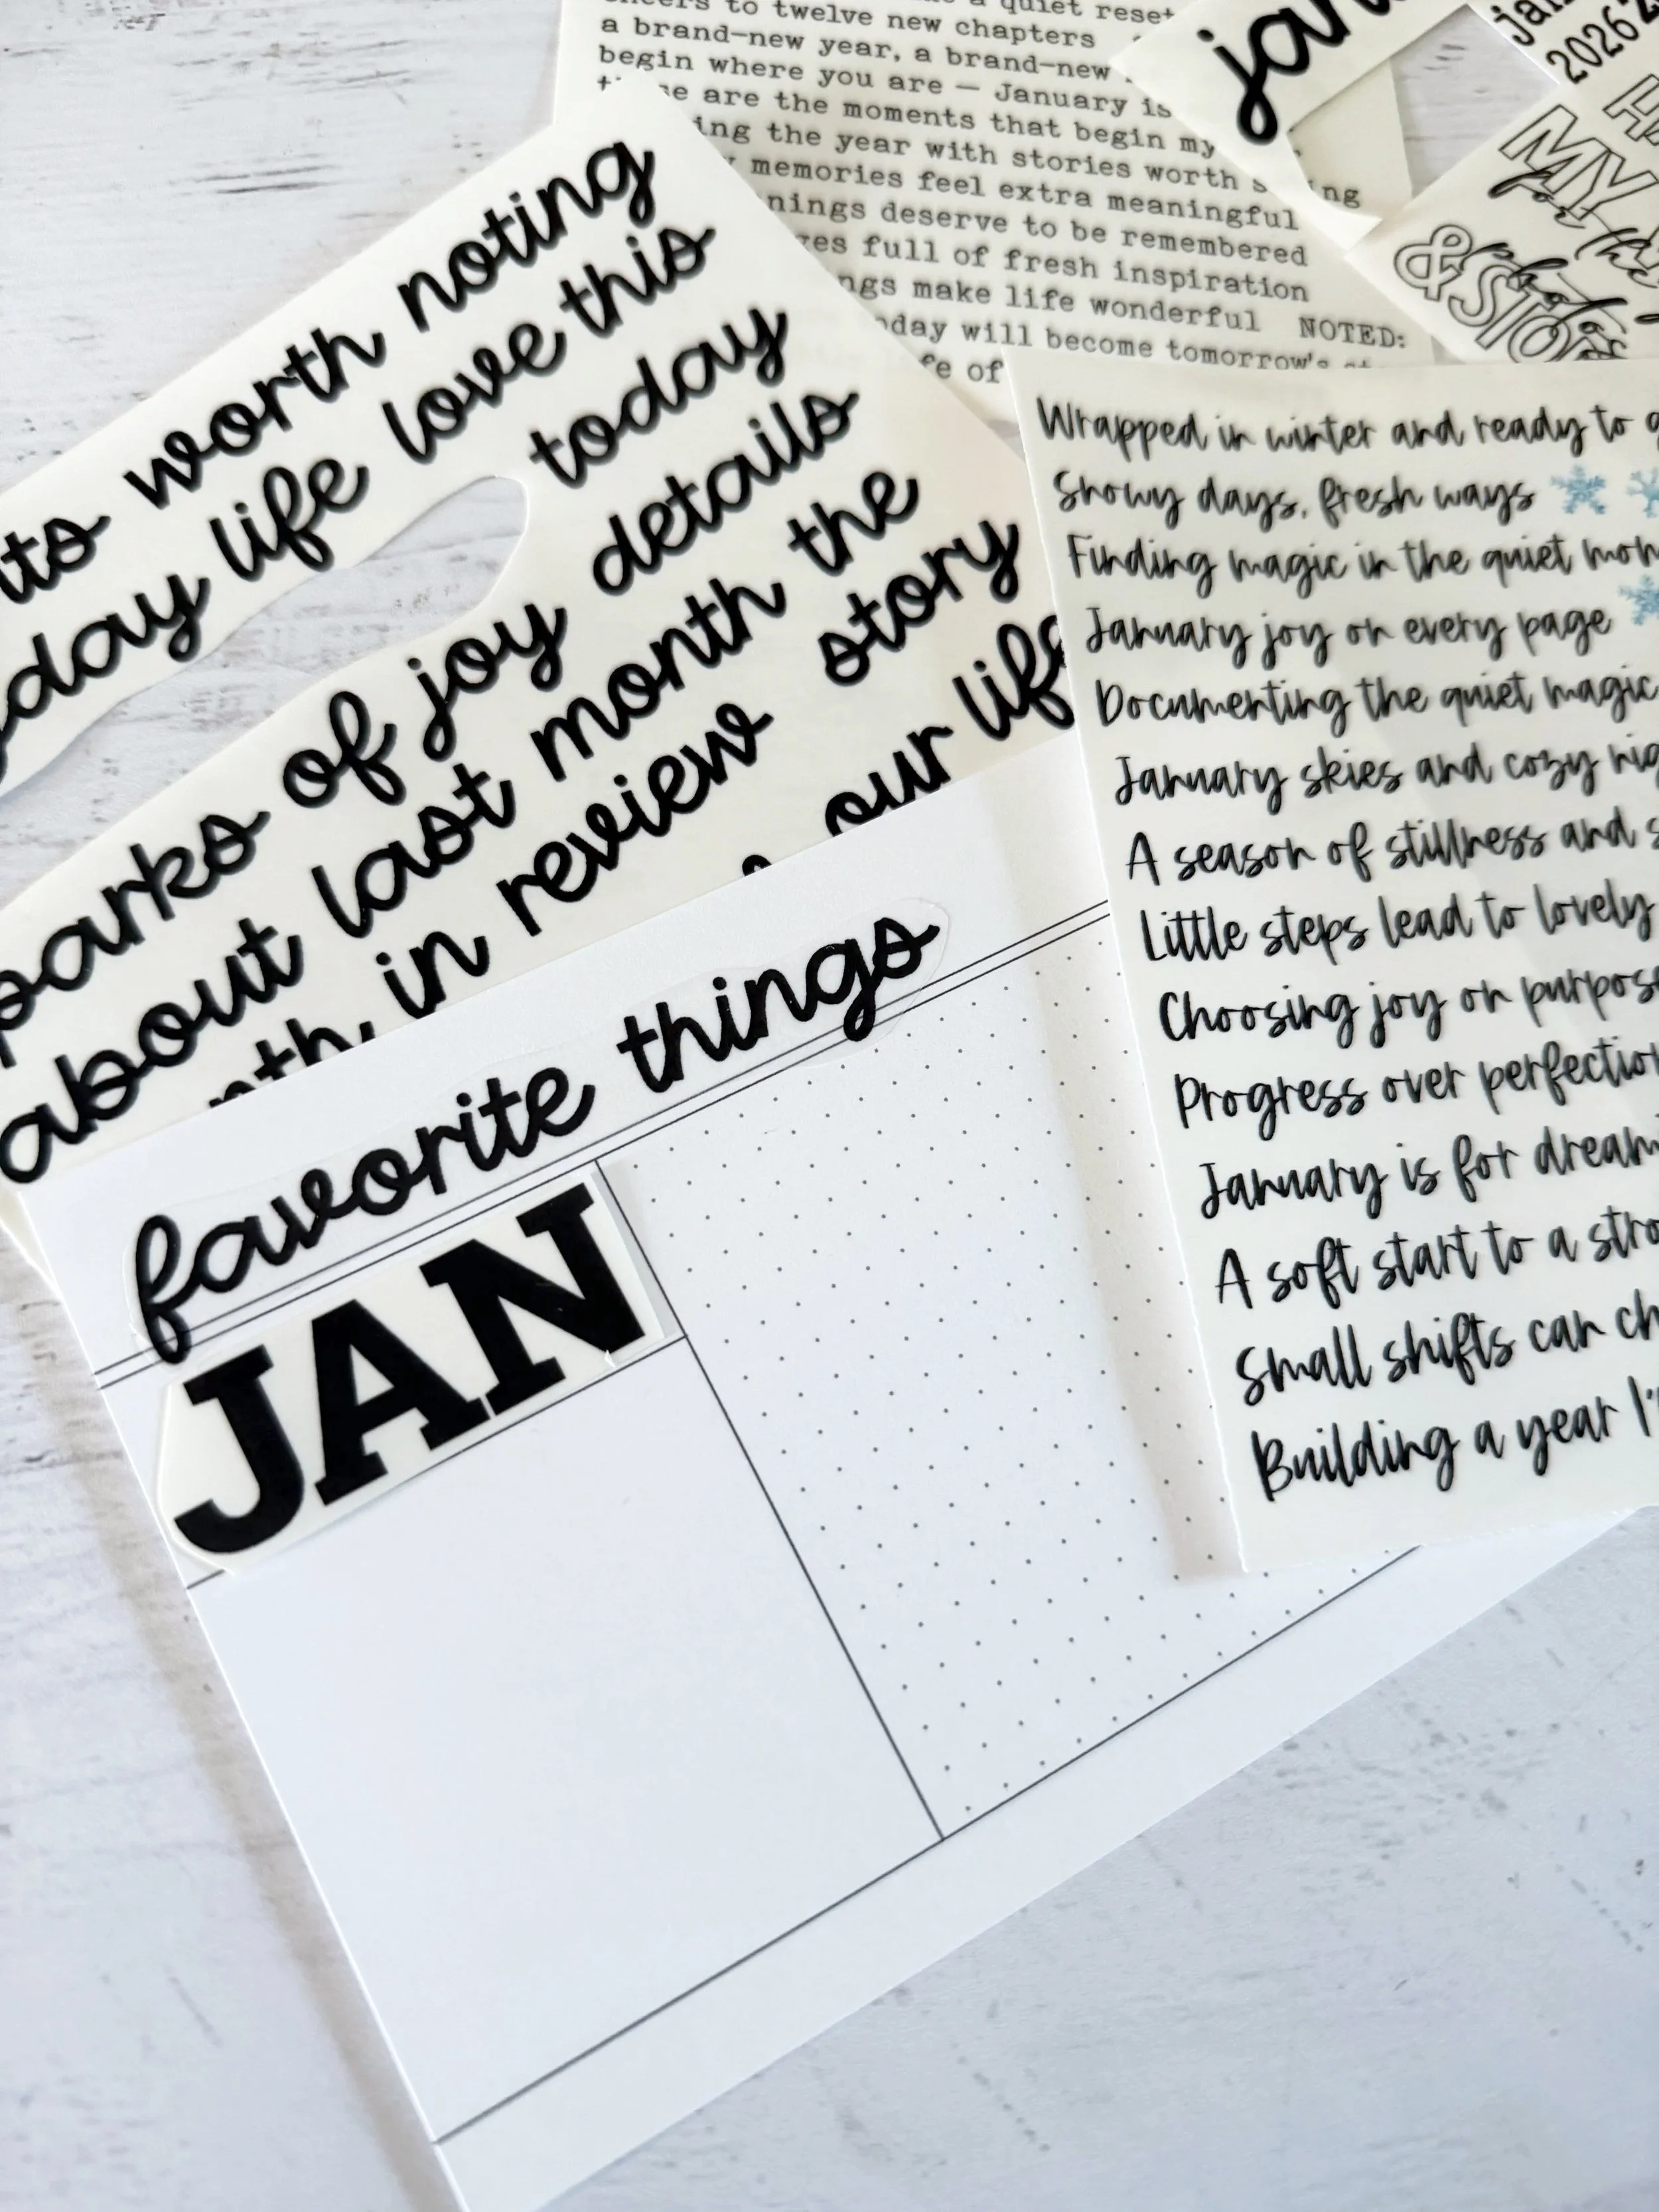 to twelve new chapters
a brand-new year, a brand-new
begin where you are — January is
are the moments that begin my
the year with stories worth
memories feel extra meaningful
deserve to be remembered
full of fresh inspiration
make life wonderful NOTED:
will become tomorrow's
of
2026
MY
&
worth noting
life love this
today
of joy details
about last month the
in review story
our
favorite things
JAN
Wrapped in winter and ready to
Snowy days, fresh ways
Finding magic in the quiet
January joy on every page
Documenting the quiet magic
January skies and cozy
A season of stillness and
Little steps lead to lovely
Choosing joy on
Progress over
January is for
A soft start to a
Small shifts can
Building a year